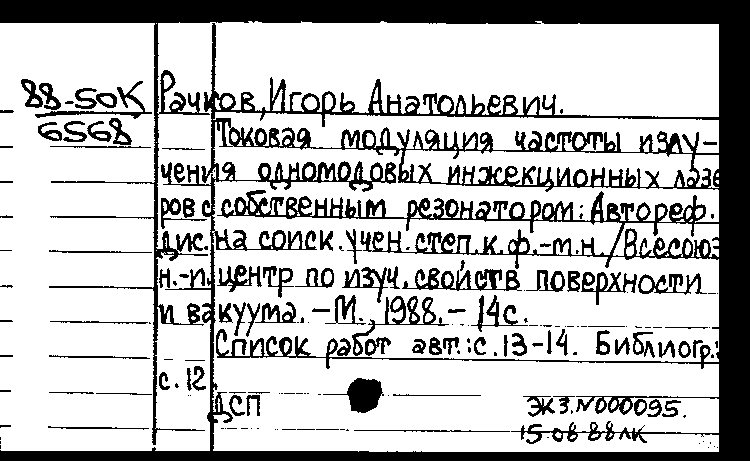 88-50К
6568
Рачков, Игорь Анатольевич.
Токовая модуляция частоты излу-
чения одномодовых инжекционных лазе
ров с собственным резонатором: Автореф.
дис. на соиск. учен. степ. к. ф.-м.н. /Всесоюз
н.-и. центр по изуч. свойств поверхности
и вакуума. – М., 1988. – 14 с.
Список работ авт.: с. 13-14. Библиогр.:
с. 12.
ДСП
Экз. N000095.
15.08.88 ЛК